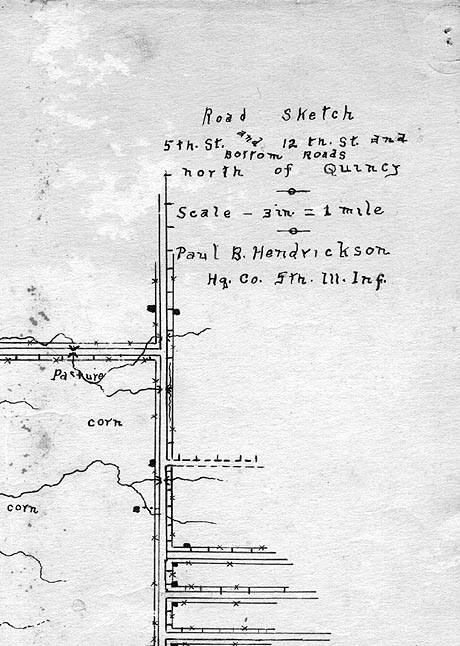 Road Sketch
5th. St. and 12 th. St. and
Bottom Roads
north of Quincy
Scale - 3 in = 1 mile
Paul B. Hendrickson
Hq. Co. 5th. Ill. Inf.
Pasture
corn
corn